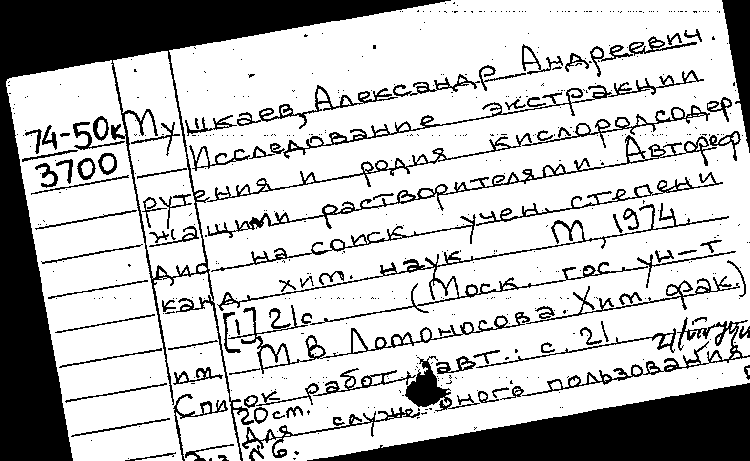 74-50к
3700
Мушкаев, Александр Андреевич.
Исследование экстракции
рутения и родия кислородсодер-
жащими растворителями. Автореф.
дис. на соиск. учен. степени
канд. хим. наук. М., 1974.
[1], 21 с. (Моск. гос. ун-т
им. М.В. Ломоносова. Хим. фак.)
Список работ авт.: с. 21.
20 см.
Для пользования
№6.